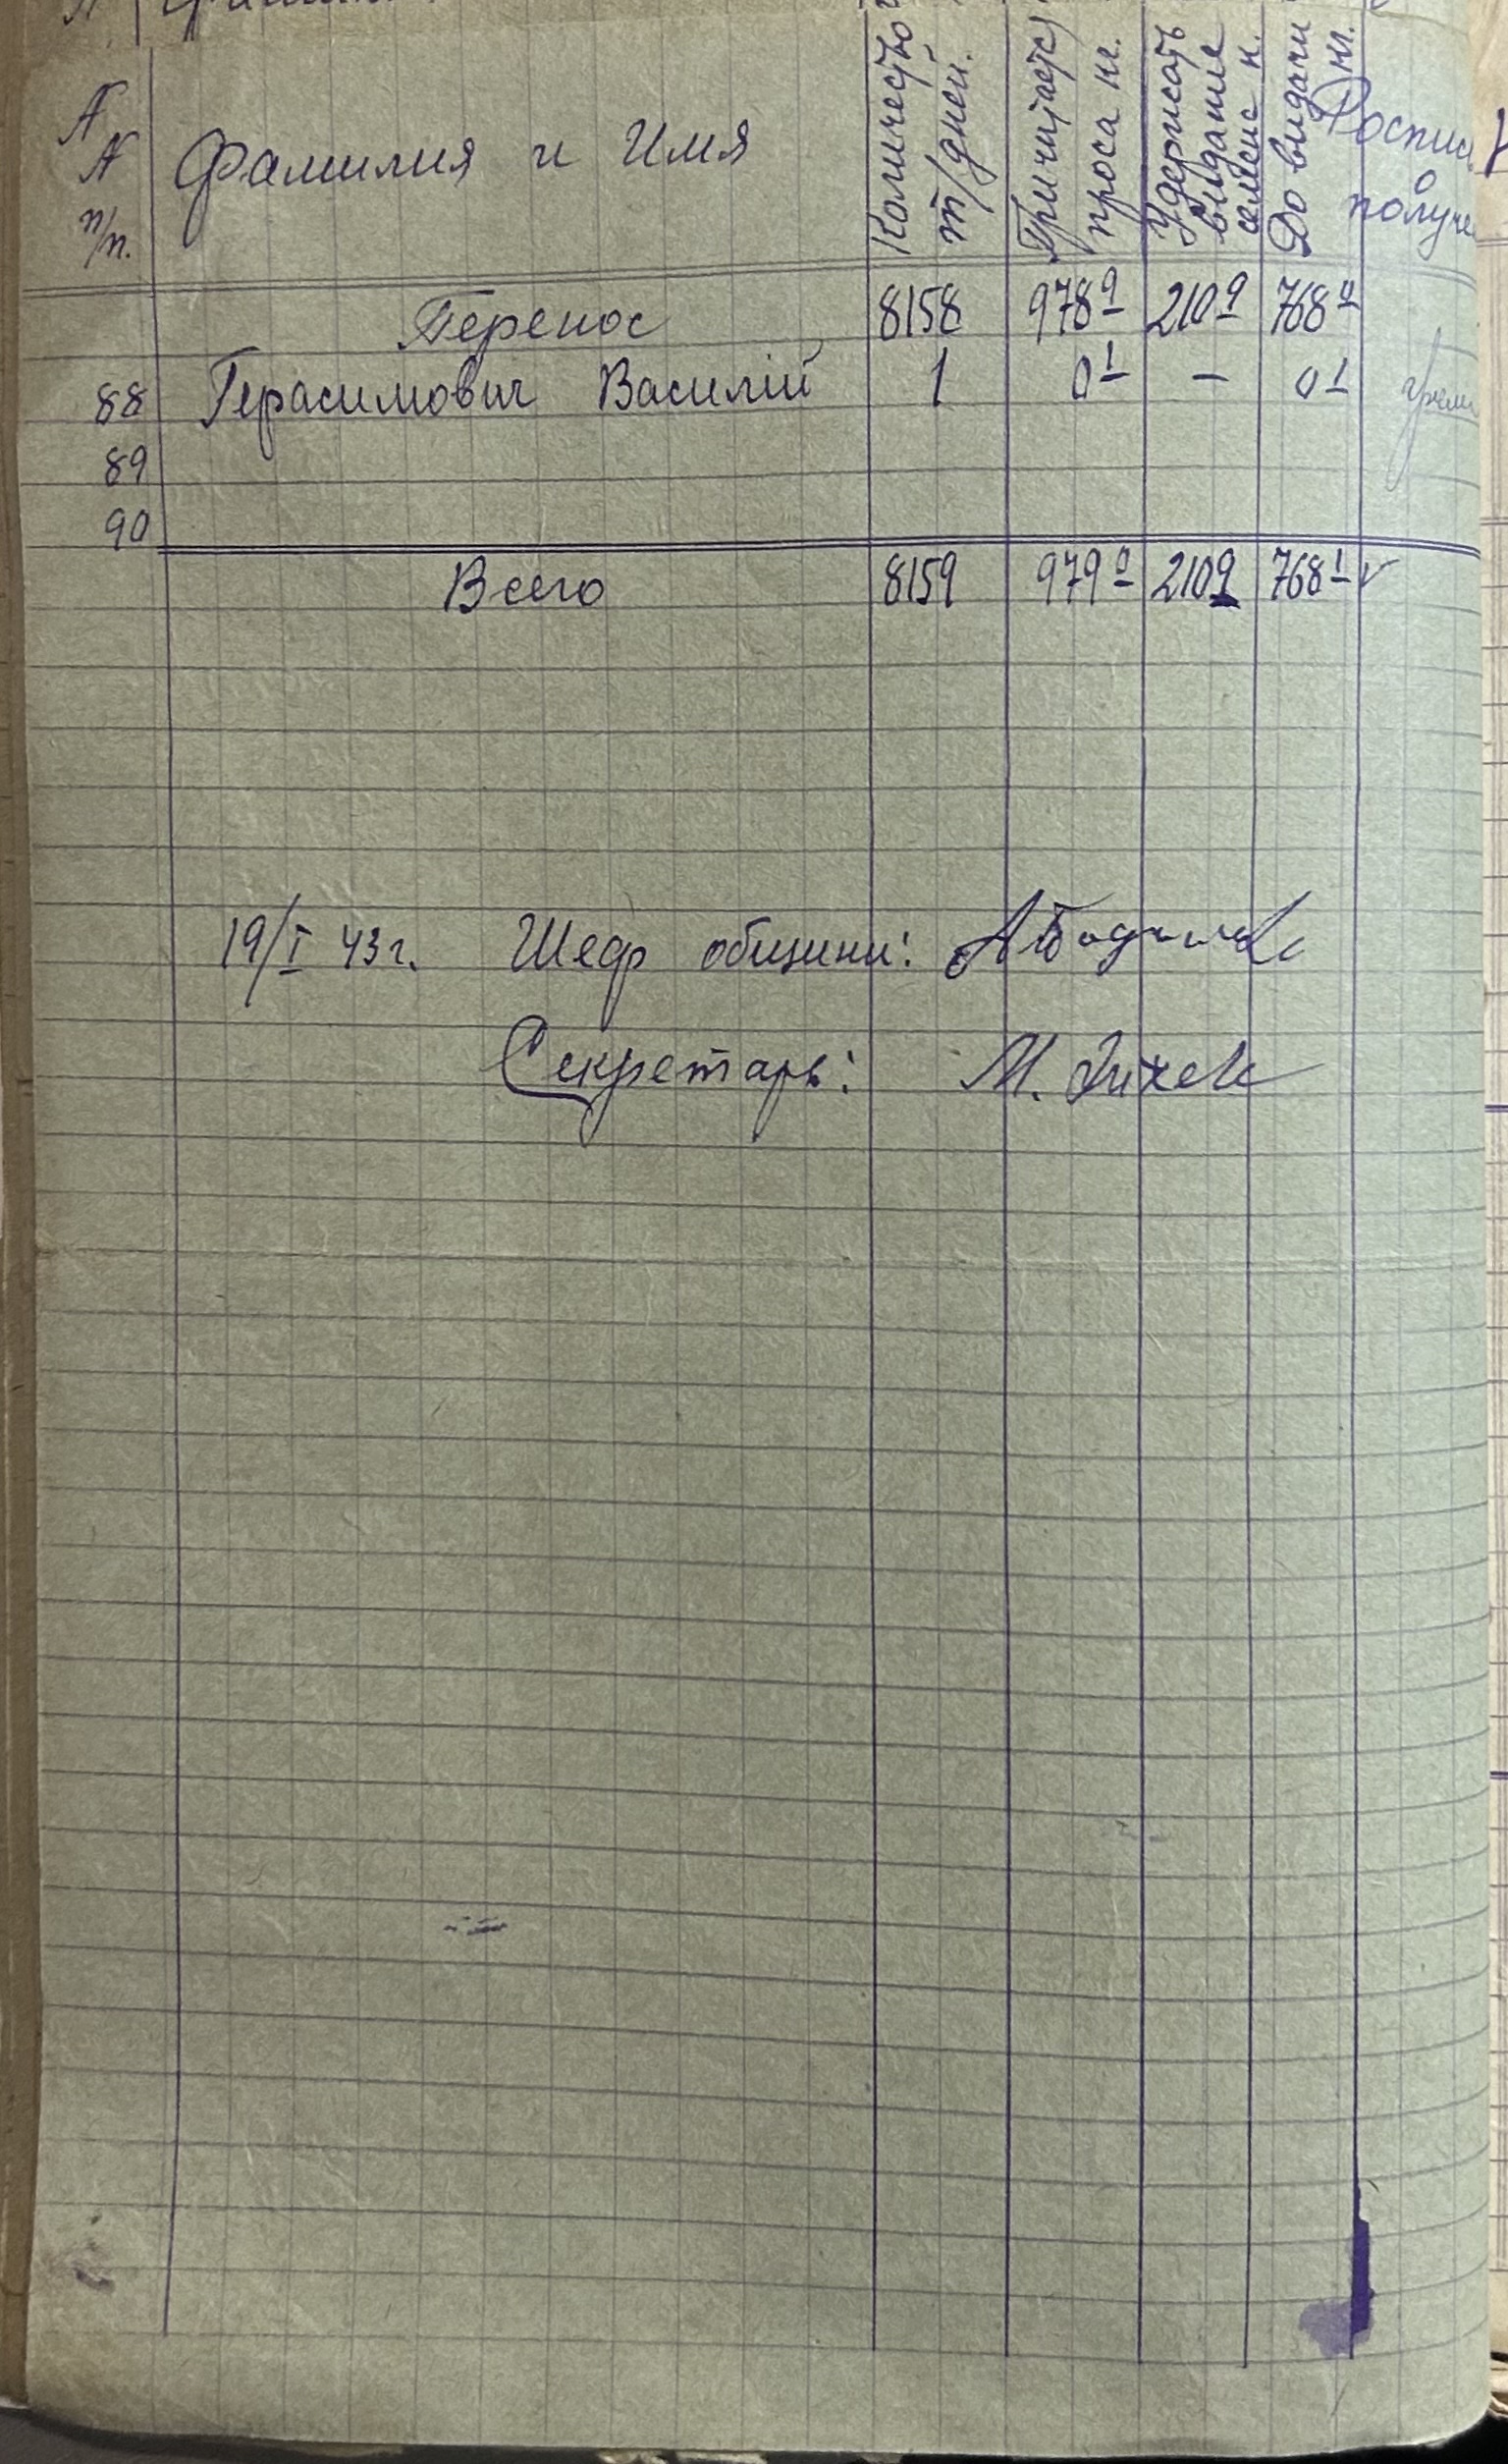 № № п/п. Фамилия и Имя Количество т/дней. Причитается проса кг. Удержать выдание семенс к. До видачи кг. Роспис о получе
Перенос 8158 978 9 210 9 768 0
88 Герасимович Василий 1 0 1 — 0 1
89
90
Всего 8159 979 0 210 9 768 1 ✓
19/I 43 г. Шеф общини:
Секретарь: М.